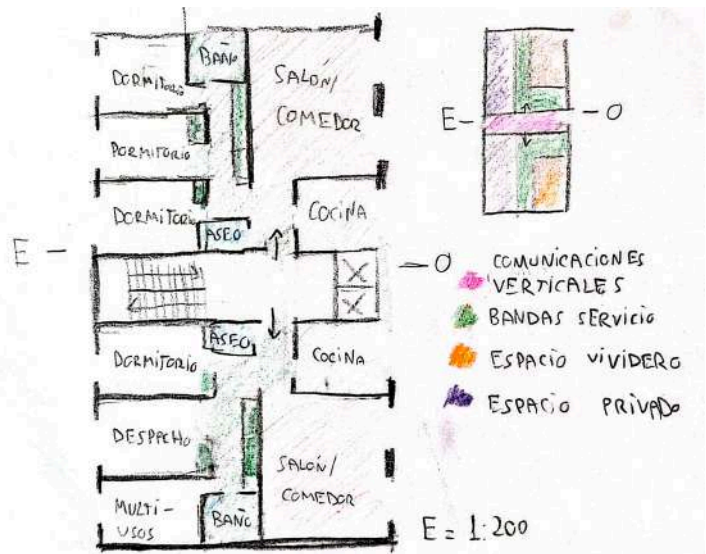 DORMITORIO
BAÑO
SALÓN/
COMEDOR
DORMITORIO
DORMITORIO
COCINA
ASEO
E -
- O
ASEO
DORMITORIO
COCINA
DESPACHO
SALÓN/
COMEDOR
MULTI-
USOS
BAÑO
E = 1:200
E-
-O
COMUNICACIONES
VERTICALES
BANDAS SERVICIO
ESPACIO VIVIDERO
ESPACIO PRIVADO